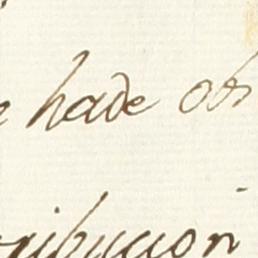 hade ob
ribucion